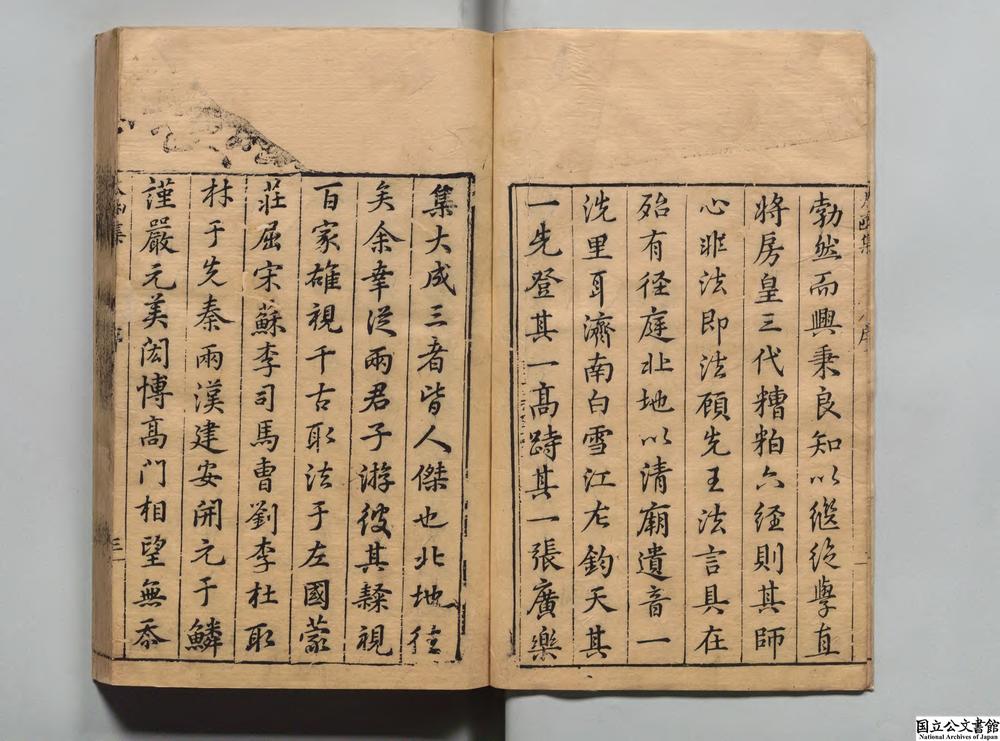 勃然而興秉良知以繼絕學直
將房皇三代糟粕六經則其師
心非法即法顧先王法言具在
殆有徑庭北地以清廟遺音一
洗里耳濟南白雪江左鈞天其
一先登其一高跱其一張廣樂
集大成三者皆人傑也北地往
矣余幸從兩君子游彼其鞣視
百家雄視千古取法于左國蒙
莊屈宋蘇李司馬曹劉李杜取
材于先秦兩漢建安開元于鱗
謹嚴元美閎博高門相望無忝
国立公文書館
National Archives of Japan